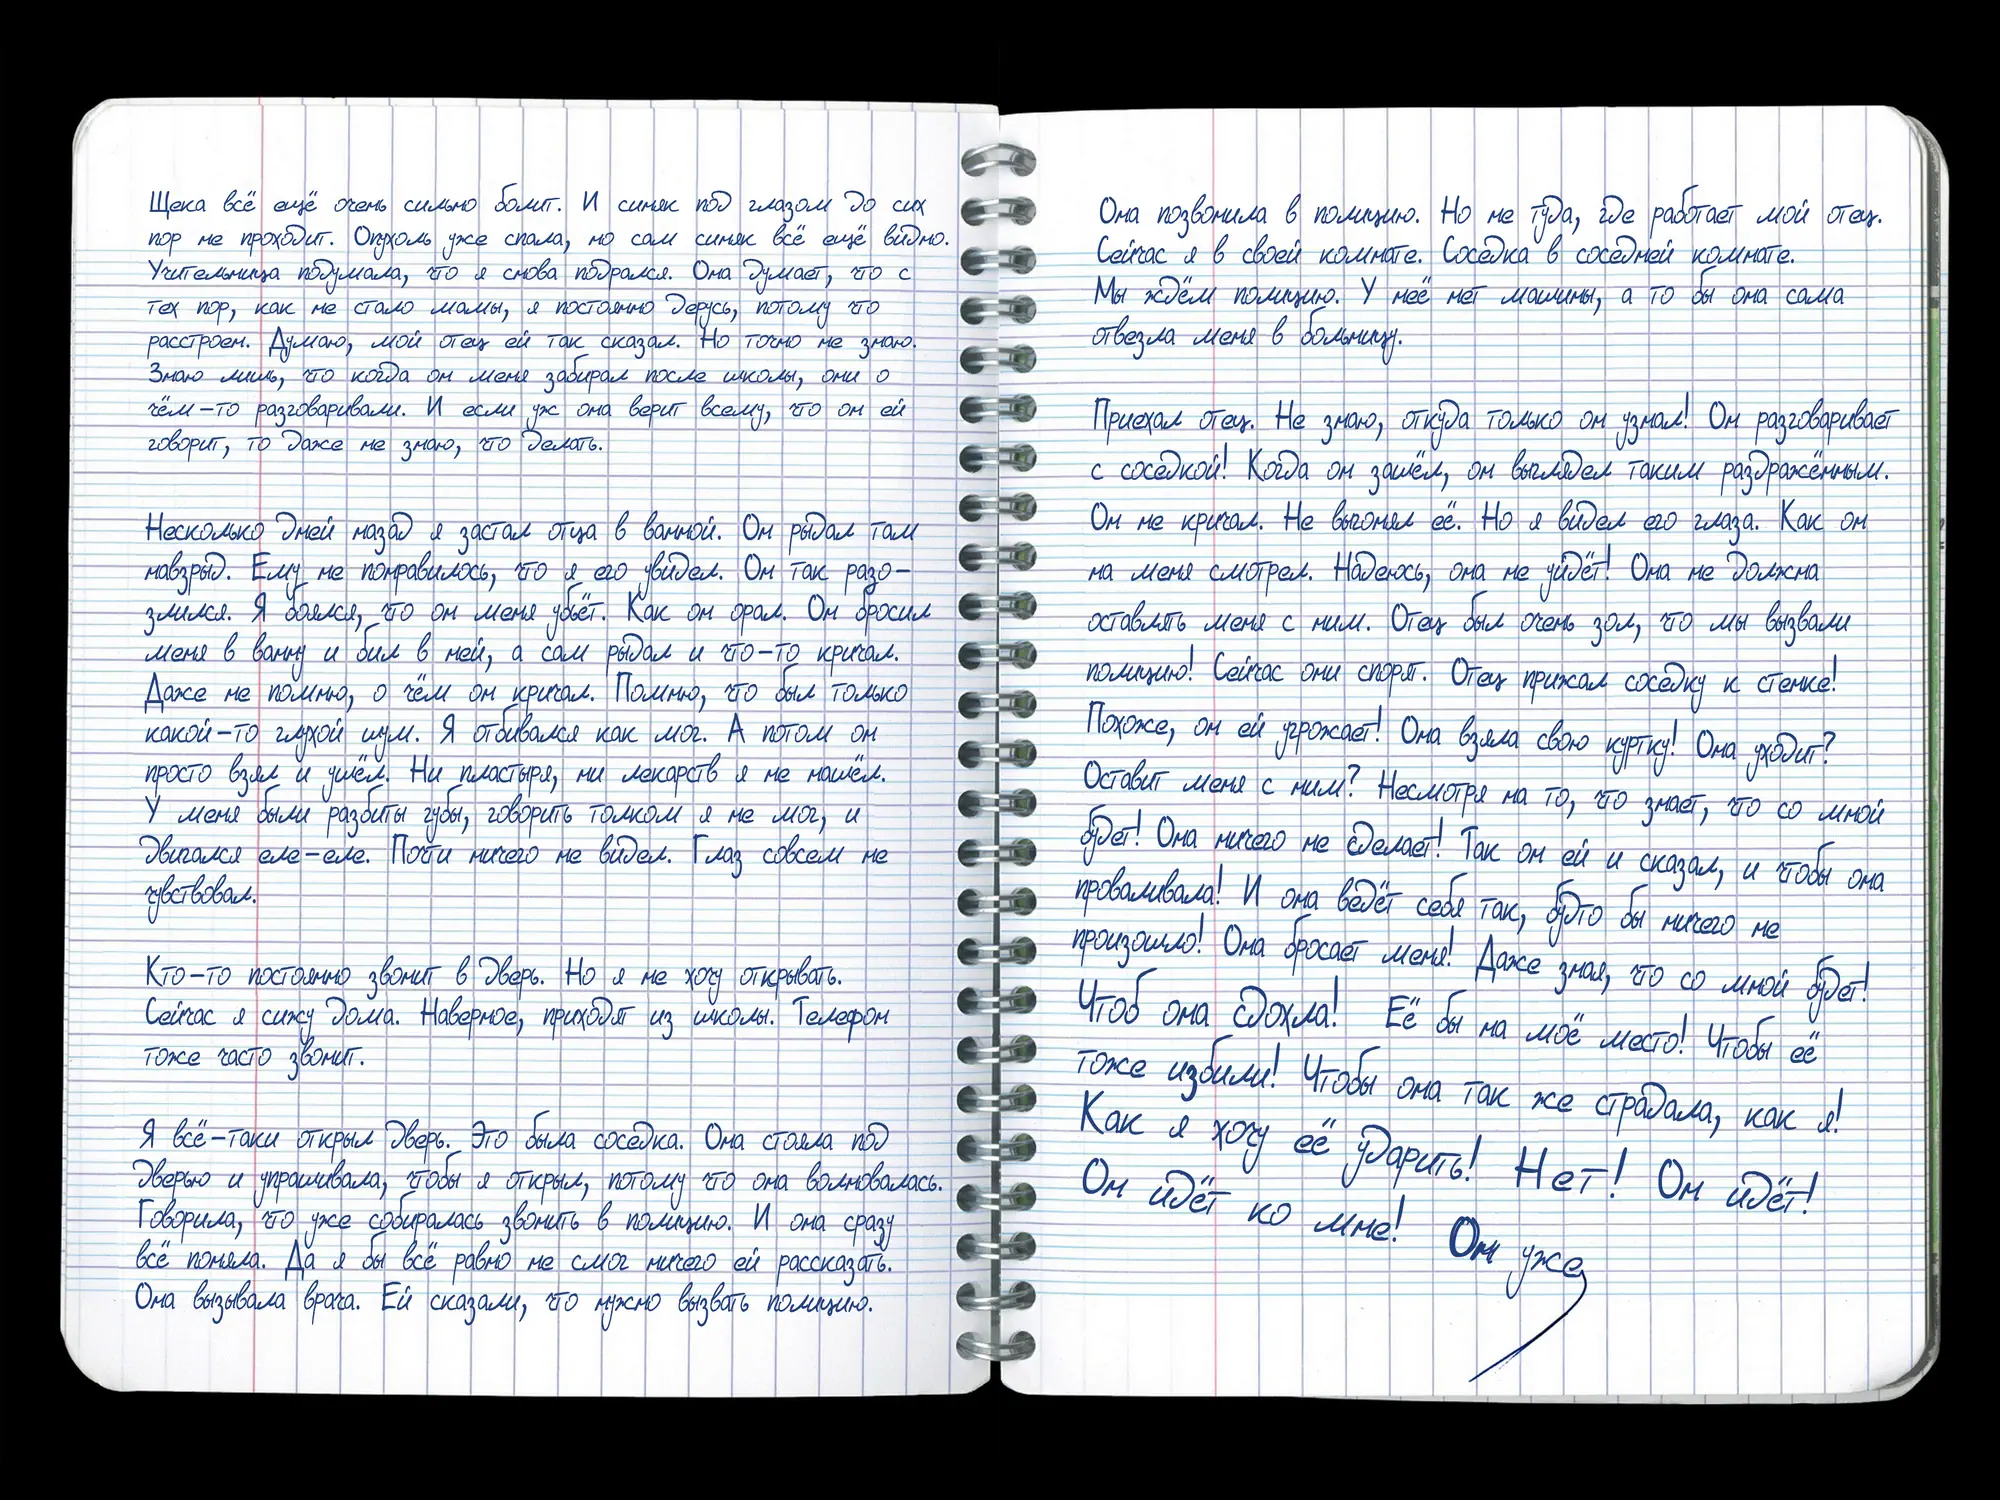 Щека всё ещё очень сильно болит. И синяк под глазом до сих
пор не проходит. Опухоль уже спала, но сам синяк всё ещё видно.
Учительница подумала, что я снова подрался. Она думает, что с
тех пор, как не стало мамы, я постоянно дерусь, потому что
расстроен. Думаю, мой отец ей так сказал. Но точно не знаю.
Знаю лишь, что когда он меня забирал после школы, они о
чём-то разговаривали. И если уж она верит всему, что он ей
говорит, то даже не знаю, что делать.
Несколько дней назад я застал отца в ванной. Он рыдал там
навзрыд. Ему не понравилось, что я его увидел. Он так разо-
злился. Я боялся, что он меня убьёт. Как он орал. Он бросил
меня в ванну и бил в ней, а сам рыдал и что-то кричал.
Даже не помню, о чём он кричал. Помню, что был только
какой-то глухой шум. Я отбивался как мог. А потом он
просто взял и ушёл. Ни пластыря, ни лекарств я не нашёл.
У меня были разбиты губы, говорить толком я не мог, и
двигался еле-еле. Почти ничего не видел. Глаз совсем не
чувствовал.
Кто-то постоянно звонит в дверь. Но я не хочу открывать.
Сейчас я сижу дома. Наверное, приходят из школы. Телефон
тоже часто звонит.
Я всё-таки открыл дверь. Это была соседка. Она стояла под
дверью и упрашивала, чтобы я открыл, потому что она волновалась.
Говорила, что уже собиралась звонить в полицию. И она сразу
всё поняла. Да я бы всё равно не смог ничего ей рассказать.
Она вызывала врача. Ей сказали, что нужно вызвать полицию.
Она позвонила в полицию. Но не туда, где работает мой отец.
Сейчас я в своей комнате. Соседка в соседней комнате.
Мы ждём полицию. У неё нет машины, а то бы она сама
отвезла меня в больницу.
Приехал отец. Не знаю, откуда только он узнал! Он разговаривает
с соседкой! Когда он зашёл, он выглядел таким раздражённым.
Он не кричал. Не выгонял её. Но я видел его глаза. Как он
на меня смотрел. Надеюсь, она не уйдёт! Она не должна
оставлять меня с ним. Отец был очень зол, что мы вызвали
полицию! Сейчас они спорят. Отец прижал соседку к стенке!
Похоже, он ей угрожает! Она взяла свою куртку! Она уходит?
Оставит меня с ним? Несмотря на то, что знает, что со мной
будет! Она ничего не сделает! Так он ей и сказал, и чтобы она
проваливала! И она ведёт себя так, будто бы ничего не
произошло! Она бросает меня! Даже зная, что со мной будет!
Чтоб она сдохла! Её бы на моё место! Чтобы её
тоже избили! Чтобы она так же страдала, как я!
Как я хочу её ударить! Нет! Он идёт!
Он идёт ко мне! Он уже